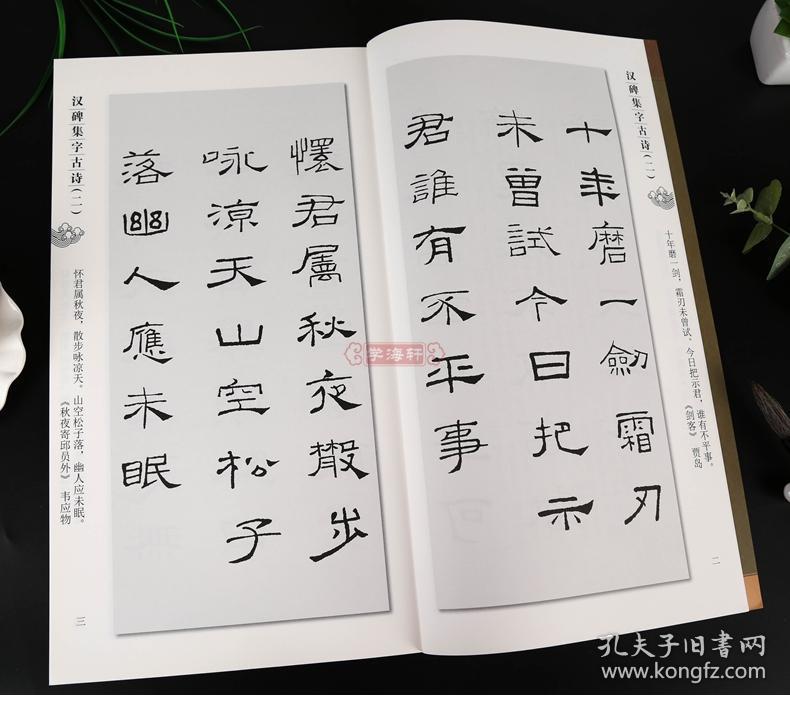 汉碑集字古诗(二)
十年磨一劍霜刃
未曾試今日把示
君誰有不平事
十年磨一剑，霜刃未曾试。今日把示君，谁有不平事。
《剑客》 贾岛
二
汉碑集字古诗(二)
懷君属秋夜散步
咏凉天山空松子
落幽人應未眠
怀君属秋夜，散步咏凉天。山空松子落，幽人应未眠。
《秋夜寄邱员外》 韦应物
三
学海轩
孔夫子旧书网
www.kongfz.com